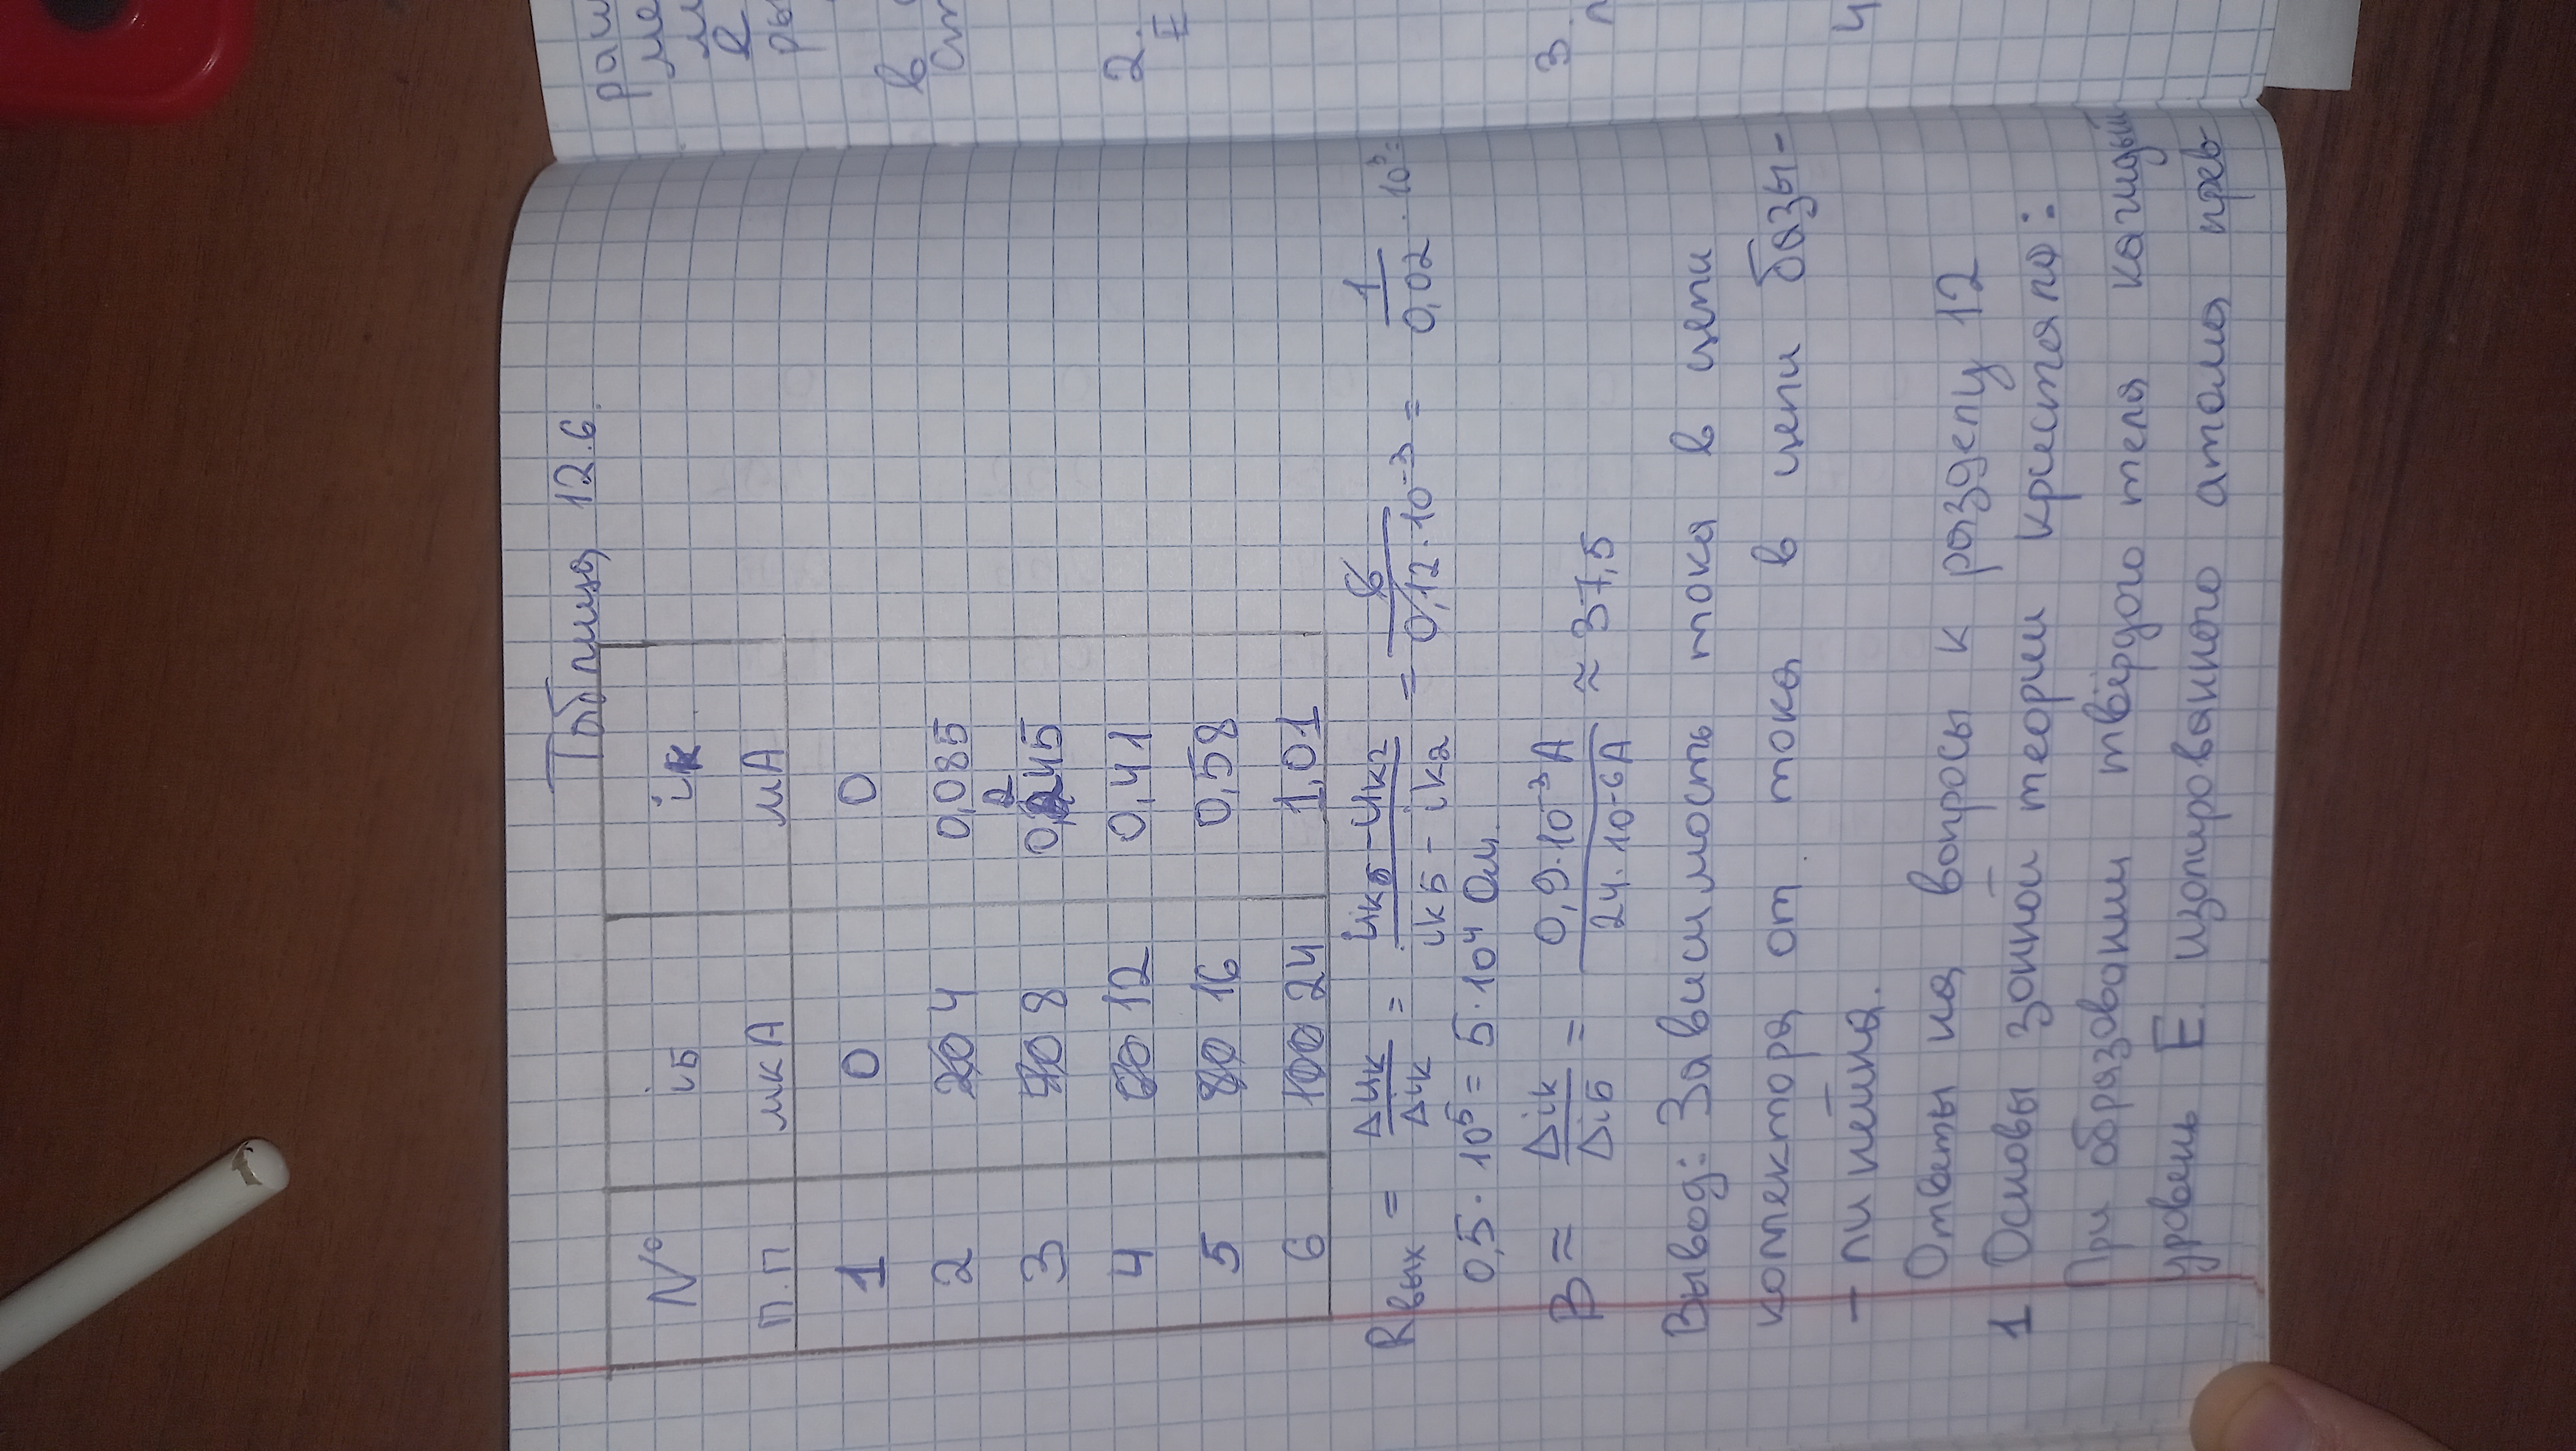 Таблица 12.6.
№ iБ iк
п.п мкА мА
1 0 0
2 20 4 0,085
3 40 8 0,245
4 60 12 0,41
5 80 16 0,58
6 100 24 1,01
Rвых = ΔUк/Δiк = (Uк5 - Uк2)/(iк5 - iк2) = 6/(0,12·10⁻³) = 1/0,02 · 10³ =
0,5 · 10⁵ = 5·10⁴ Ом.
B ≈ Δiк/ΔiБ = 0,9·10⁻³A/24·10⁻⁶A ≈ 37,5
Вывод: Зависимость тока в цепи
коллектора от тока в цепи базы-
- линейна.
Ответы на вопросы к разделу 12
1 Основы зонной теории кристалло:
При образовании твёрдого тела каждый
уровень E изолированного атома прев-
раш
ме
м
е
ры
в
ст
2.
E
3.
п
4